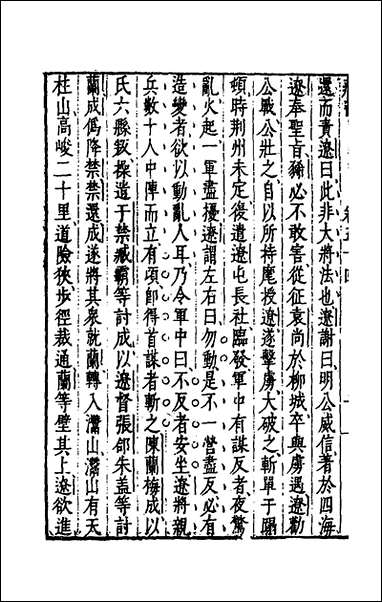 還而責遼曰此非大將法也遼謝曰明公威信著於四海
遼奉聖旨豨必不敢害從征袁尚於柳城卒與虜遇遼勸
公戰公壯之自以所持麾授遼遂擊虜大破之斬單于蹋
頓時荆州未定後遣遼屯長社臨發軍中有謀反者夜驚
亂火起一軍盡擾遼謂左右曰勿動是不一營盡反必有
造變者欲以動亂人耳乃令軍中曰不反者安坐遼將親
兵數十人中陣而立有頃即得首謀者斬之陳蘭梅成以
氏六縣叛操遣于禁臧霸等討成以遼督張郃朱盖等討
蘭成僞降禁禁還成遂將其衆就蘭轉入灊山灊山有天
柱山高峻二十里道險狹步徑裁通蘭等壁其上遼欲進